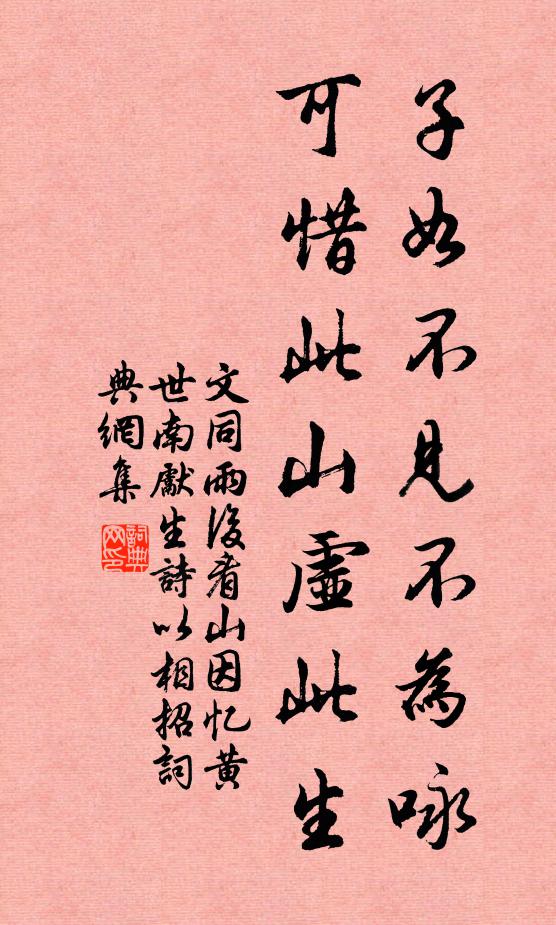 子如不見不為咏
可惜此山虛此生
文同雨後看山因忆黄
世南獻生詩以相招詞
典網集
詞典
网印